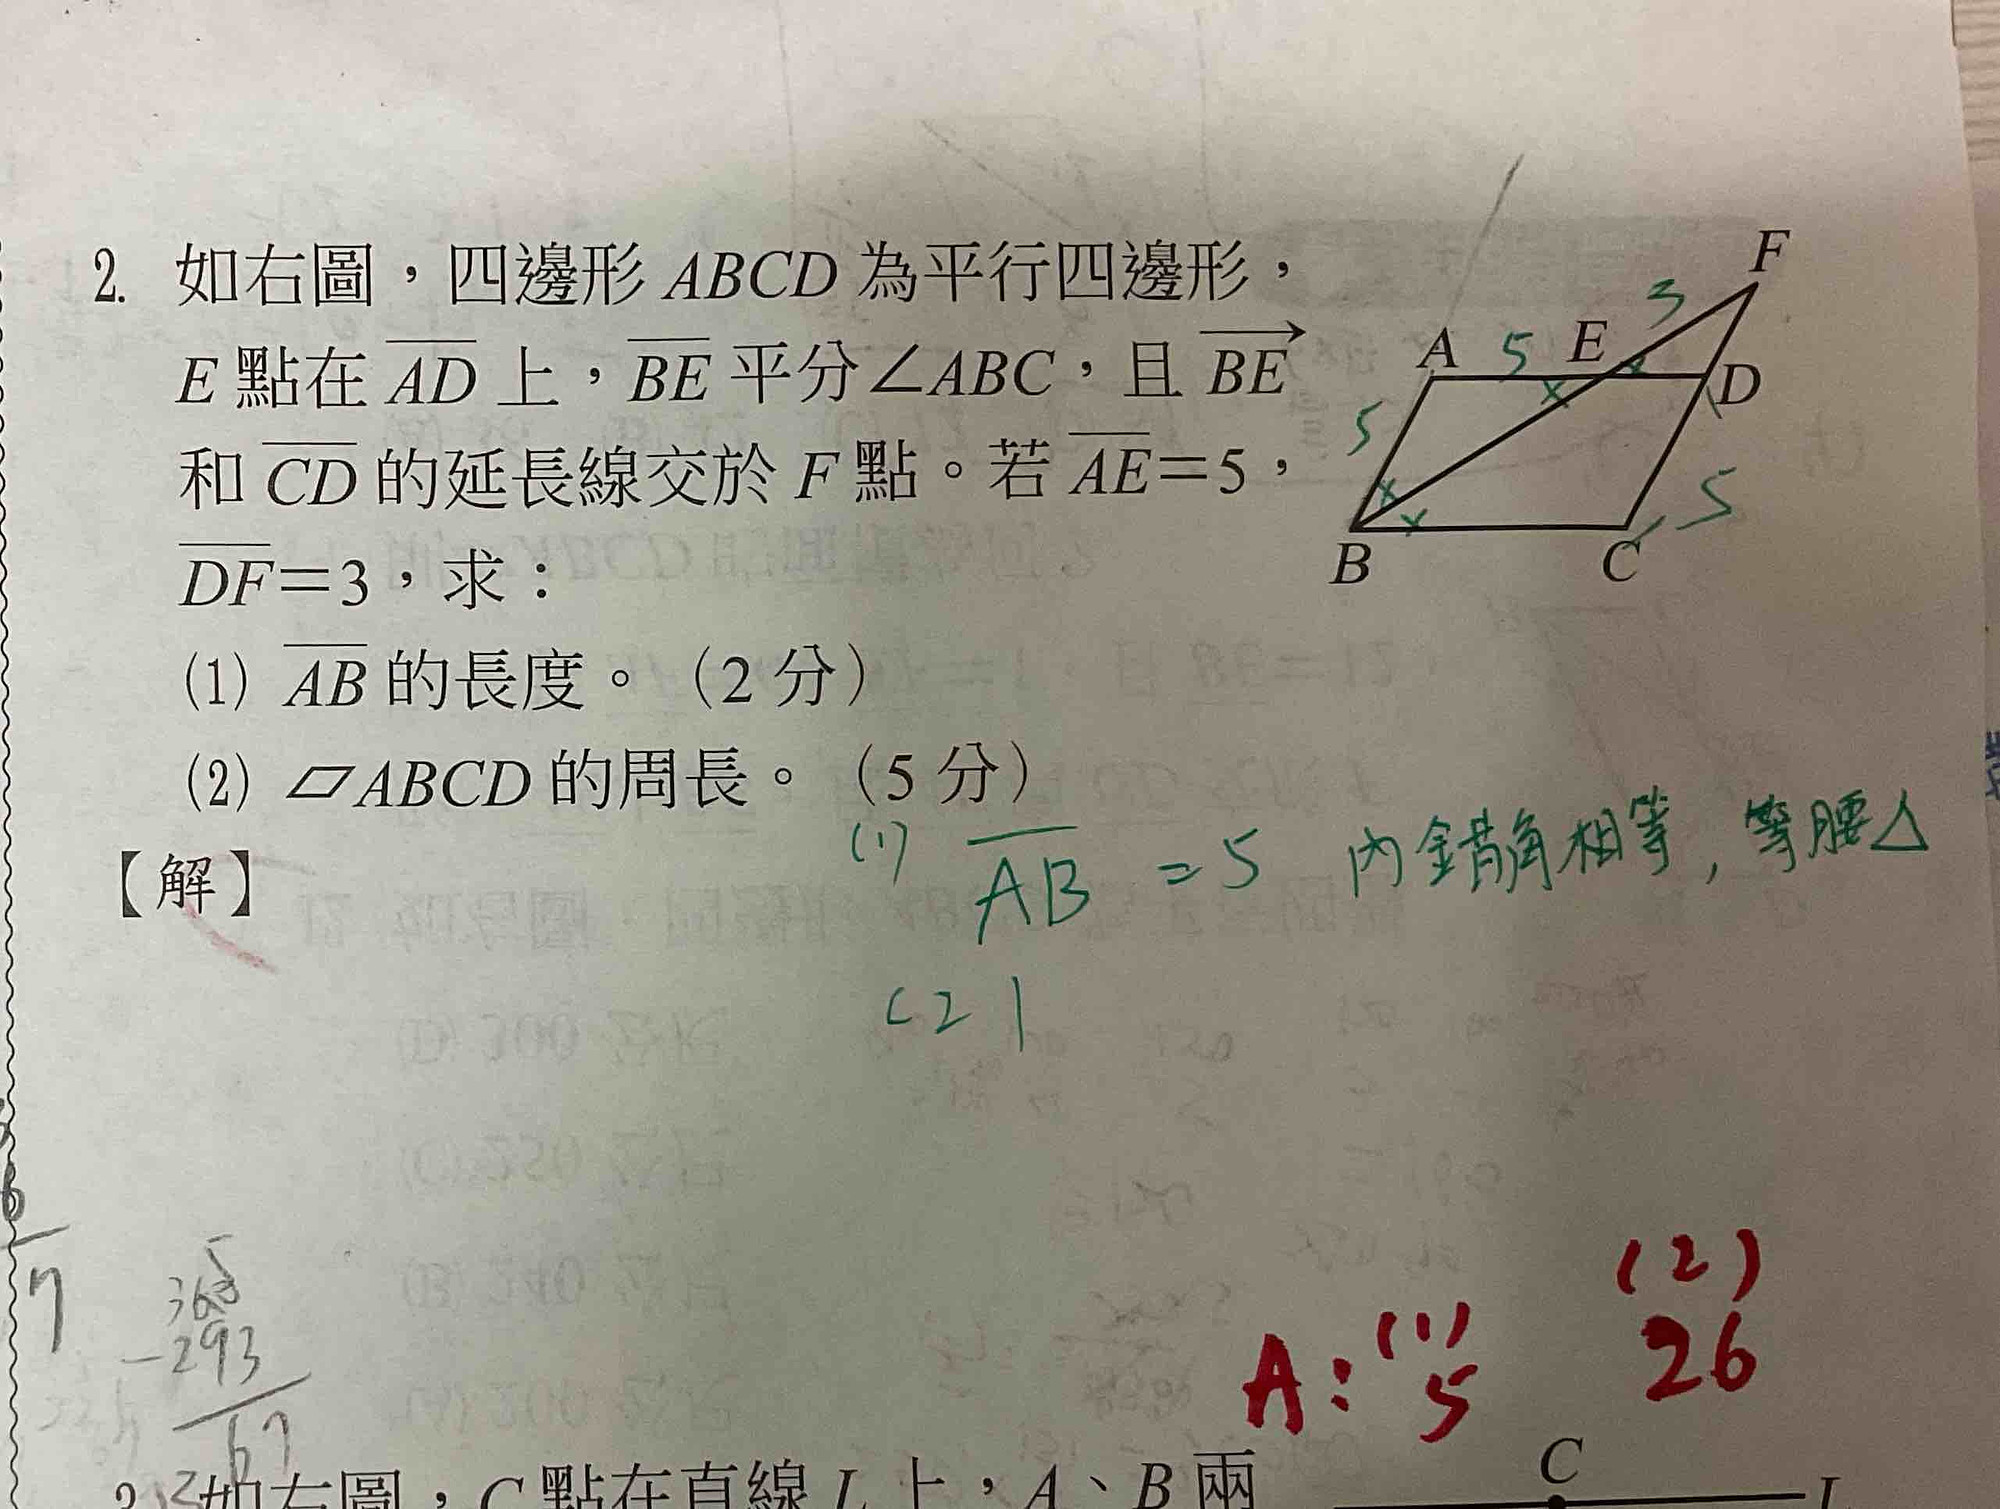 2. 如右圖,四邊形 ABCD 為平行四邊形,
E 點在 AD 上,BE 平分∠ABC,且 BE
和 CD 的延長線交於 F 點。若 AE=5,
DF=3,求:
(1) AB 的長度。(2 分)
(2) ▱ABCD 的周長。(5 分)
【解】
F
3
A 5 E
D
5
5
B
C
(1) AB = 5 內錯角相等,等腰△
(2)
6
7
5
365
-293
67
A: (1) 5
(2) 26
如右圖,C 點在直線 L 上,A、B 兩
C
L